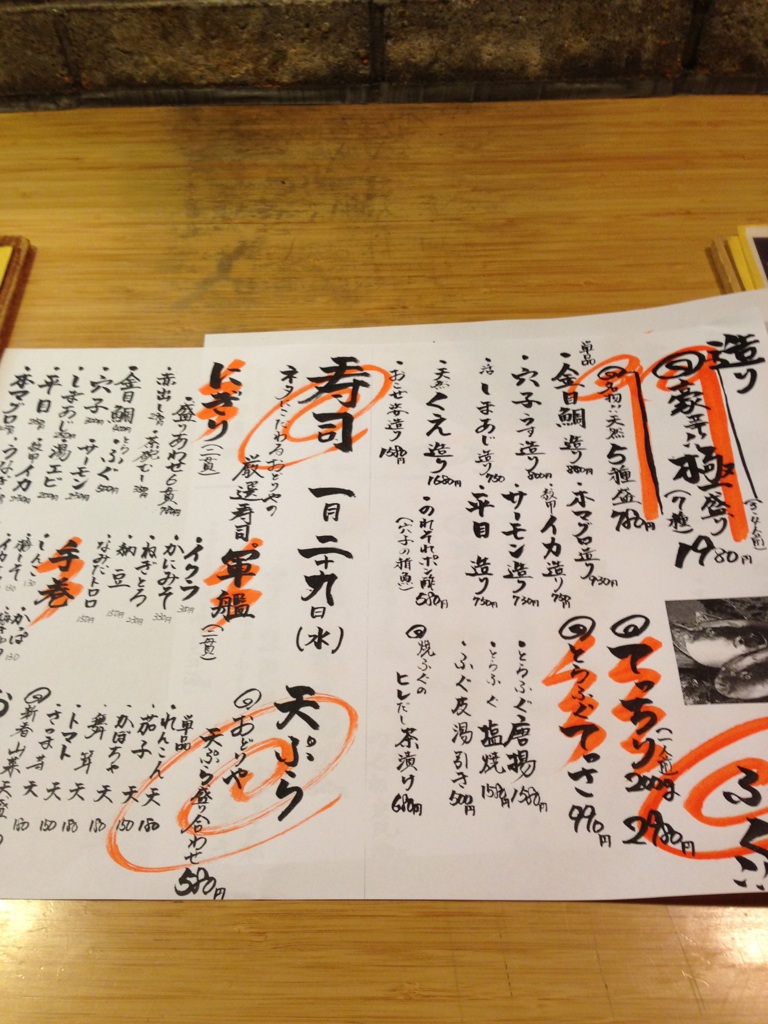 造り
極盛り
(7種)
1980円
名物!!天然
5種盛
780円
単品
・金目鯛造り 880円
・本マグロ造り 930円
・穴子うす造り 880円
・イカ造り 750円
・活しまあじ造り 750
・サーモン造り 730円
・天然くえ造り 1680円
・平目造り 730円
・おこぜ姿造り 1580円
・のれそれポン酢 580円
(穴子の稚魚)
ふぐ!!
てっちり
(一人前)
200g
2980円
とらふぐてっさ
990円
・とらふぐ唐揚 1580円
・とらふぐ塩焼 1580円
・ふぐ皮湯引き 500円
焼ふぐの
ヒレだし茶漬け 680円
寿司
一月二十九日(水)
ネタにこだわるおどりやの
厳選寿司
にぎり
(二貫)
・盛りあわせ6貫
・赤出し
・茶碗むし
・金目鯛
・とらふぐ
・穴子
・サーモン
・しまあじ
・湯エビ
・平目
・イカ
・本マグロ
・うなぎ
軍艦
(二貫)
・イクラ
・かにみそ
・ねぎとろ
・納豆
・なみだトロロ
手巻
・しんこ
・梅しそ
・かっぱ
天ぷら
おどりや
天ぷら盛り合わせ
580円
単品
・れんこん天 180
・茄子天 150
・かぼちゃ天 150
・舞茸天 180
・トマト天 180
・さつま芋天 150
新春山菜天盛